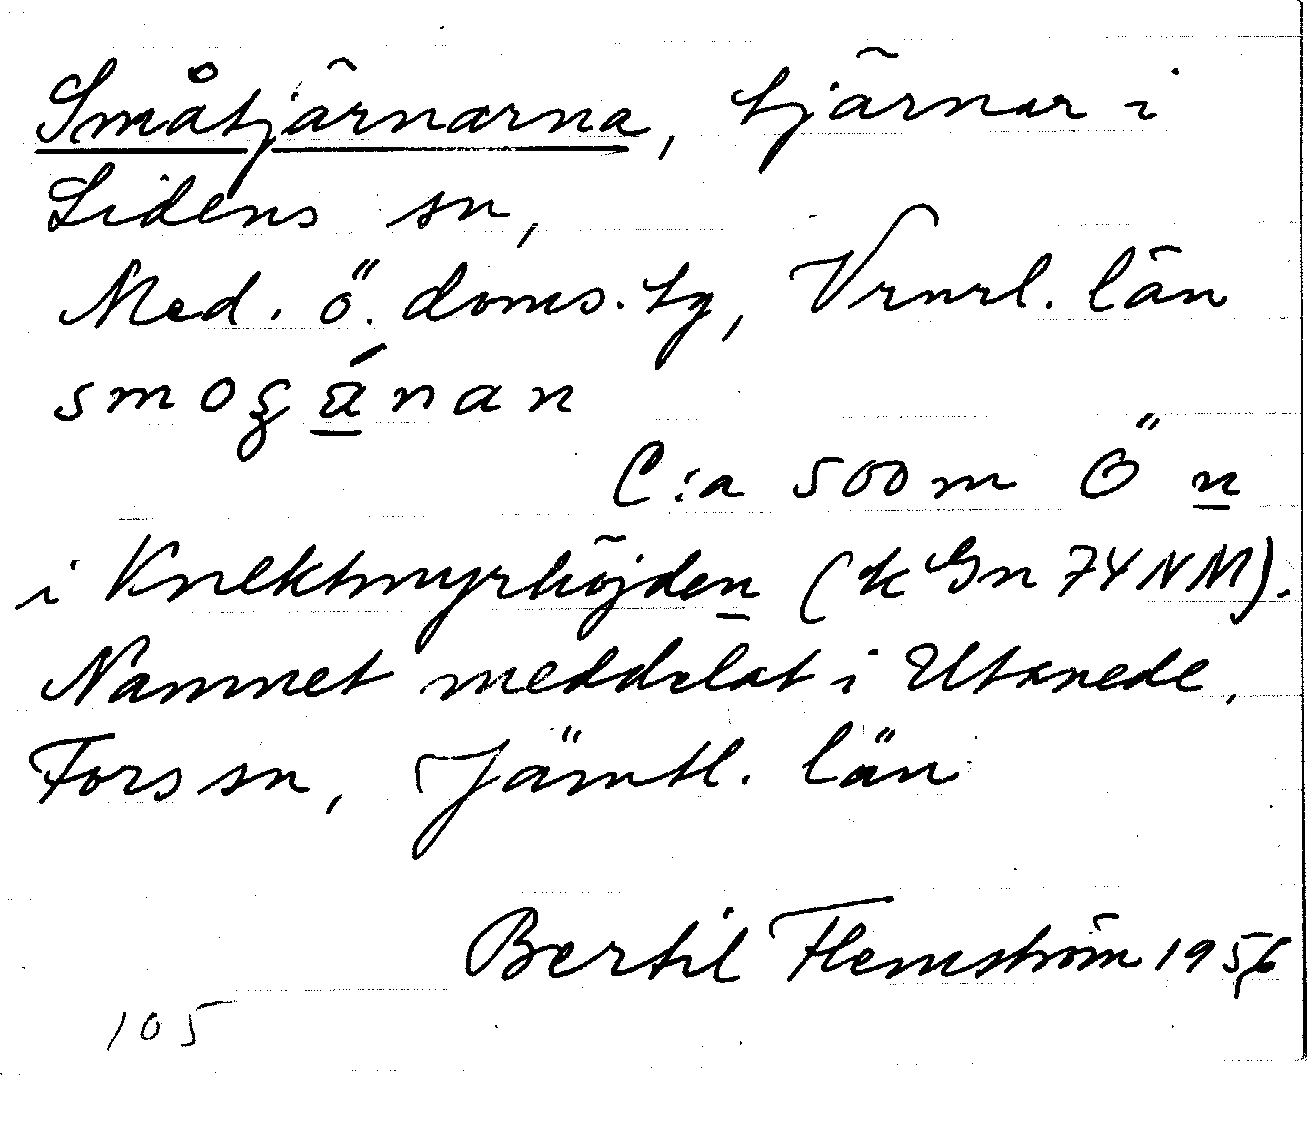 Småtjärnarna, tjärnar i
Lidens sn,
Med. ö. doms. tg, Vrnrl. län
smoʒá̱nan
C:a 500 m Ö n
i Knektmyrhöjden (k Gn 74 NM).
Namnet meddelat i Utanede,
Fors sn, Jämtl. län
Bertil Flemström 1956
105